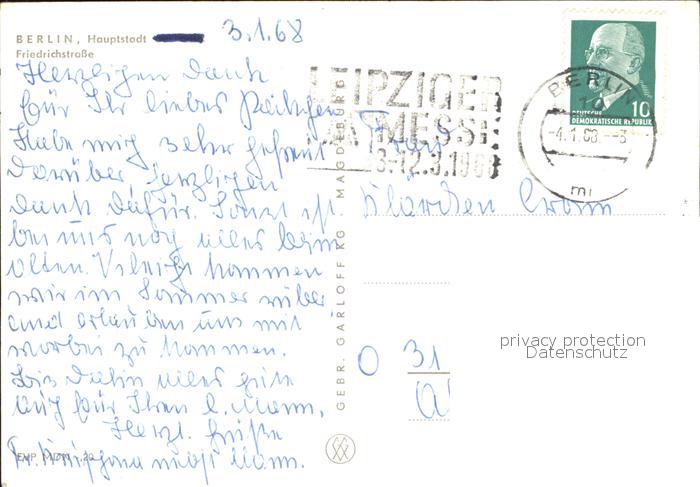 BERLIN, Hauptstadt
Friedrichstraße
3.1.68
Herzligen Dank
für Ihr liebes Päckchen
Habe mig sehr gefreut
Darüber, herzligen
Dank dafür. Sonst ist
bei uns nog alles beim
alten. Vileigt kommen
wir im Sommer rüber
und erlauben uns mit
vorbei zu kommen.
Bis dahin alles gute
aug für Ihren l. Mann,
Herzl. Grüße
Fr. nebst Mann.
GEBR. GARLOFF KG. MAGDEBURG
LEIPZIGER
MESSE
3.-12.3.196
BERLIN
-4.1.68.--3
mi
10
DEUTSCHE
DEMOKRATISCHE REPUBLIK
Frau
Klärchen
O 31
privacy protection
Datenschutz